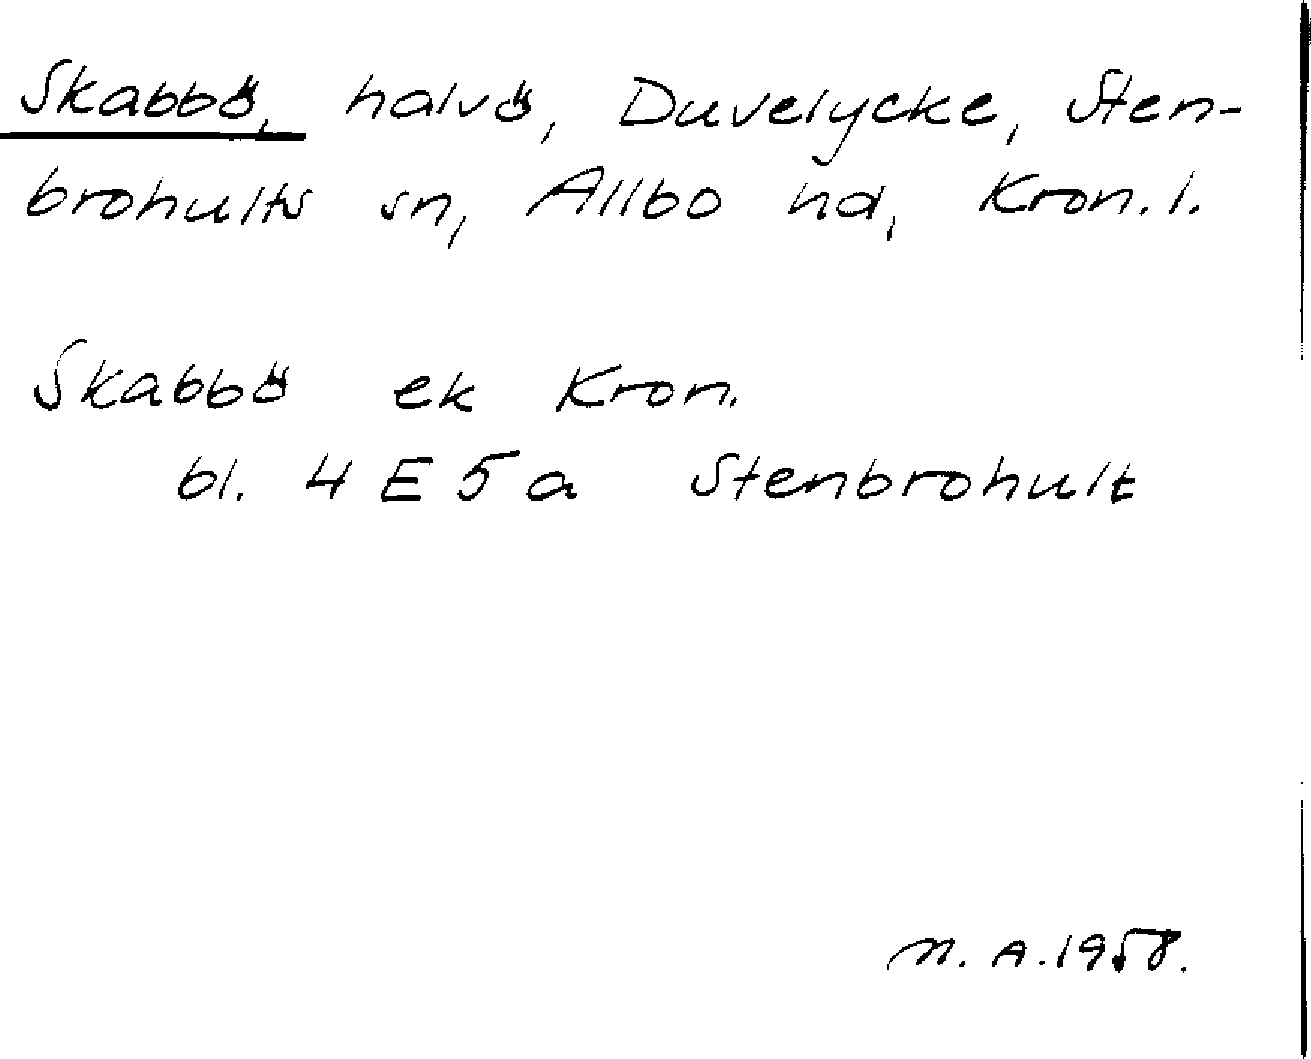 Skabbö, halvö, Duvelycke, Sten-
brohults sn, Allbo hd, Kron. l.
Skabbö ek Kron.
bl. 4 E 5 a Stenbrohult
M. A. 1958.